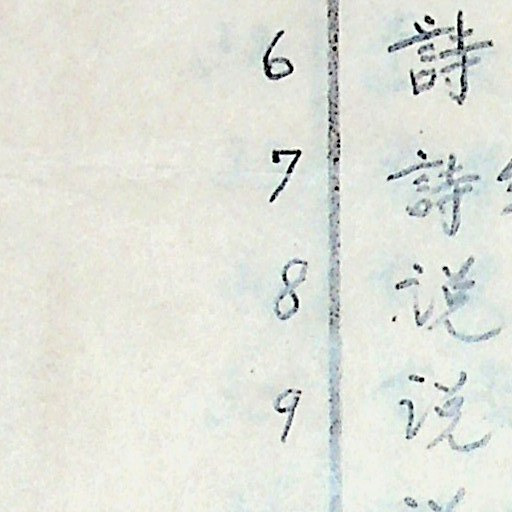 6 詩
7 詩
8 说
9 说